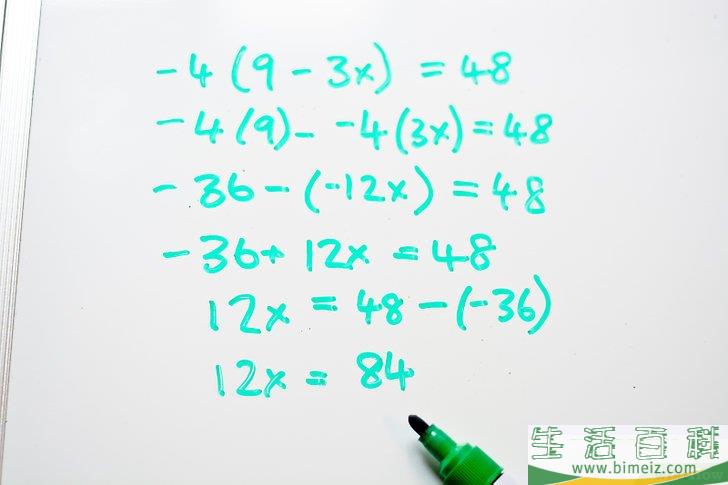 -4(9-3x)=48
-4(9)--4(3x)=48
-36-(-12x)=48
-36+12x=48
12x=48-(-36)
12x=84
生活百科
www.bimeiz.com